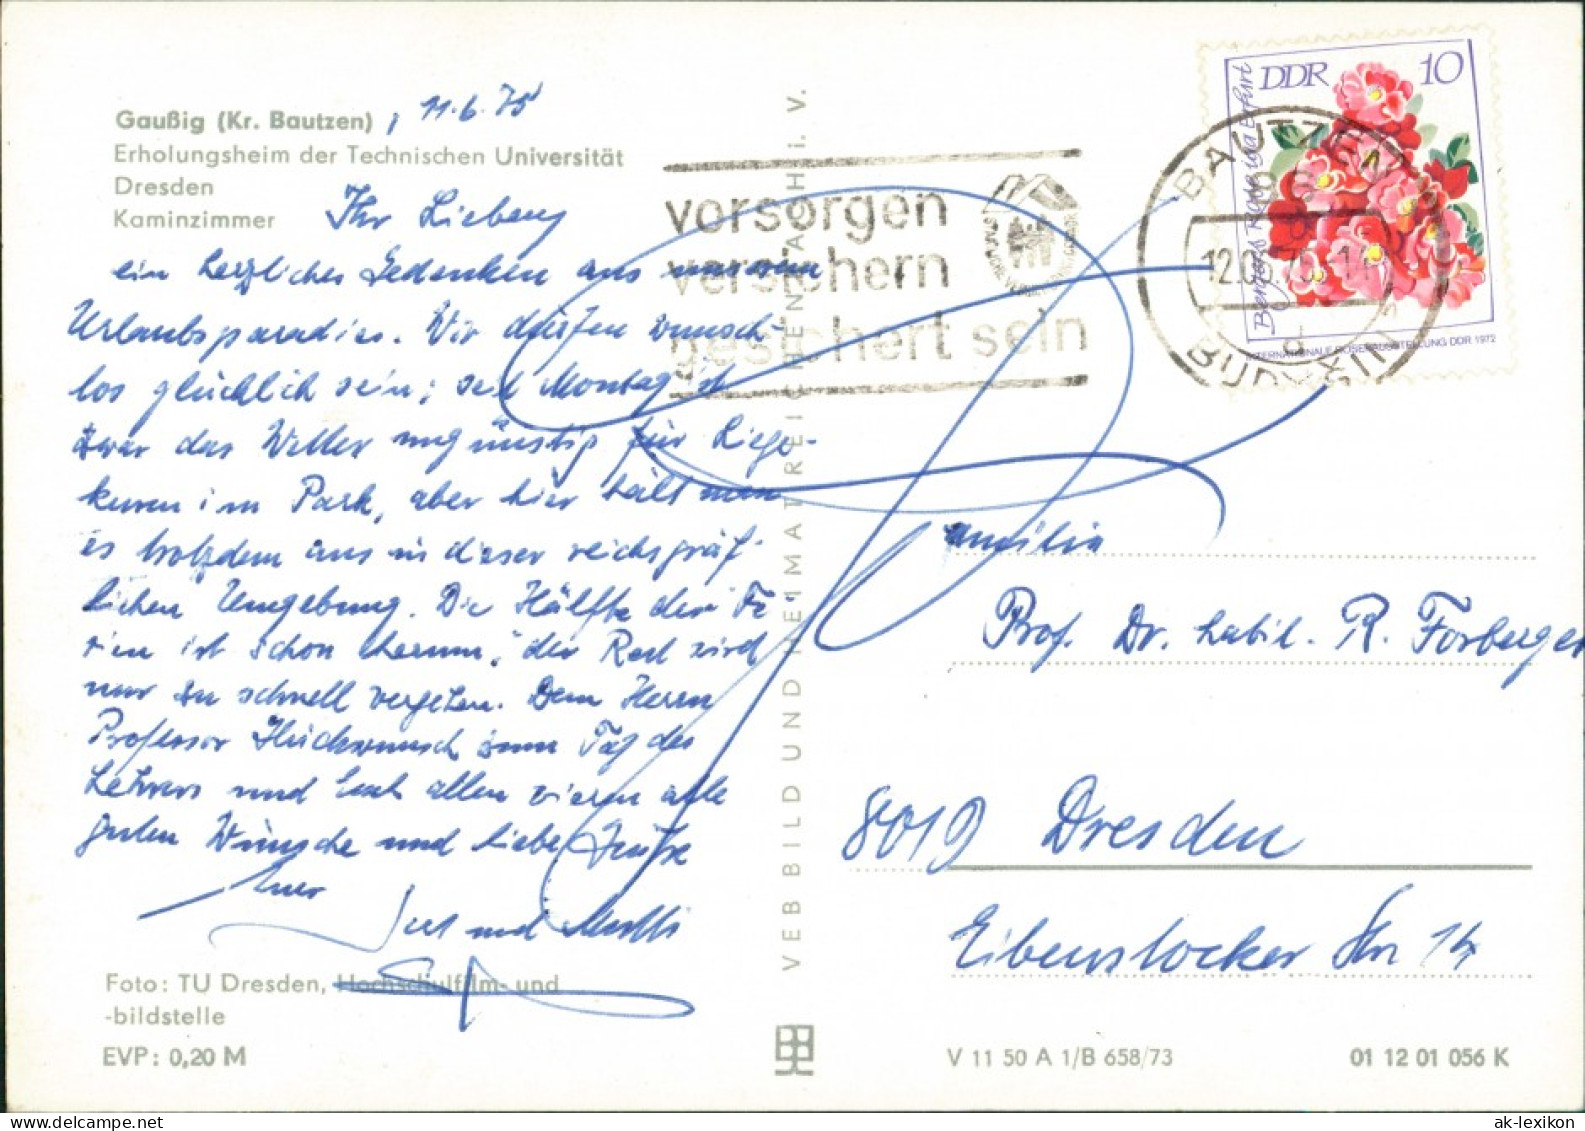 Gaußig (Kr. Bautzen), 11.6.75
Erholungsheim der Technischen Universität
Dresden
Kaminzimmer
Ihr Lieben,
ein herzliches Gedenken aus unserem
Urlaubsparadies. Wir dürfen wunsch-
los glücklich sein; seit Montag ist
zwar das Wetter ungünstig für Liege-
kuren im Park, aber hier hält man
es trotzdem aus in dieser reichsgräf-
lichen Umgebung. Die Hälfte der Fe-
rien ist schon herum, der Rest wird
nur zu schnell vergehen. Dem Herrn
Professor Glückwunsch zum Tag des
Lehrers und Euch allen vieren alle
guten Wünsche und liebe Grüße
Eure
und
Foto: TU Dresden, Hochschulfilm- und
-bildstelle
EVP: 0,20 M
VEB BILD UND HEIMAT REICHENBACH i. V.
vorsorgen
versichern
gesichert sein
BAUTZEN
BUDYŠIN
DDR 10
INTERNATIONALE ROSENAUSSTELLUNG DDR 1972
Familie
Prof. Dr. habil. R. Forberger
8019 Dresden
Eibenstocker Str. 14
V 11 50 A 1/B 658/73
01 12 01 056 K
ak-lexikon